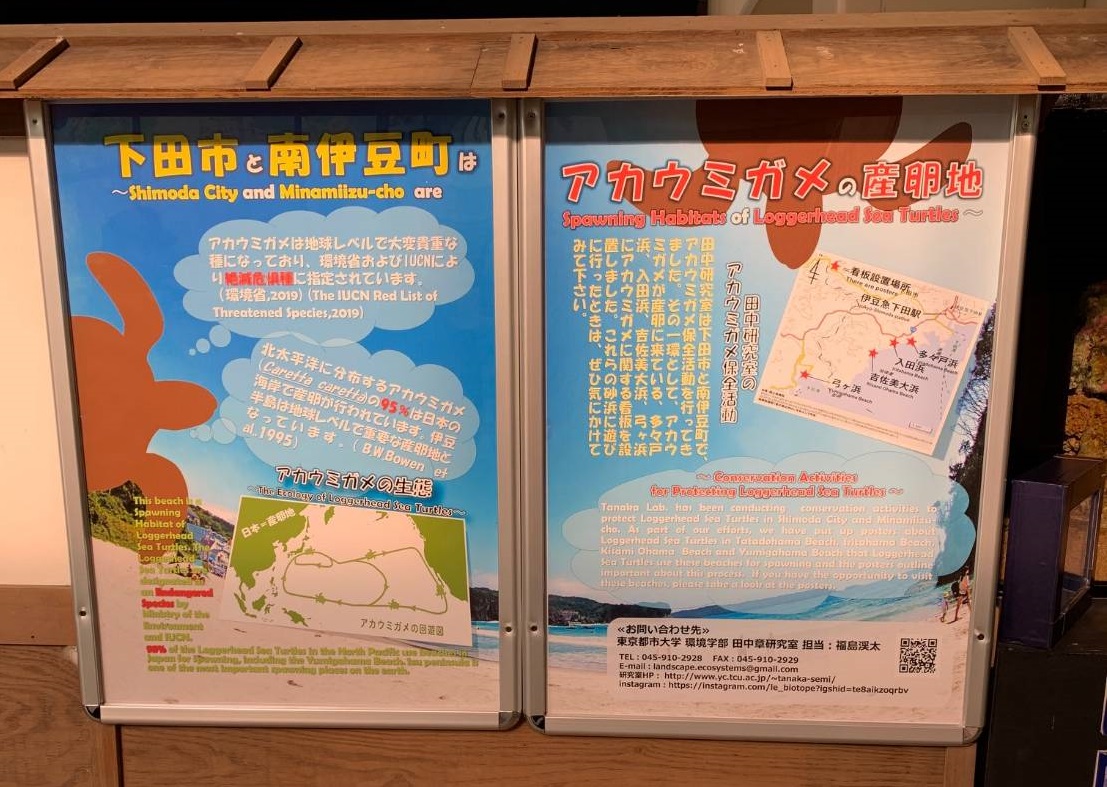 下田市と南伊豆町は
～Shimoda City and Minamiizu-cho are
アカウミガメは地球レベルで大変貴重な
種になっており、環境省およびIUCNによ
り絶滅危惧種に指定されています。
(環境省,2019) (The IUCN Red List of
Threatened Species,2019)
北太平洋に分布するアカウミガメ
(Caretta caretta)の95%は日本の
海岸で産卵が行われています。伊豆
半島は地球レベルで重要な産卵地と
なっています。(B.W.Bowen et
al.1995)
アカウミガメの生態
～The Ecology of Loggerhead Sea Turtles～
日本=産卵地
アカウミガメの回遊図
This beach is a
Spawning
Habitat of
Loggerhead
Sea Turtles. The
Loggerhead
Sea Turtle
designated as
an Endangered
Species by
Ministry of the
Environment
and IUCN.
of the Loggerhead Sea Turtles in the North Pacific use beaches in
Japan for Spawning, including the Yumigahama Beach. Izu peninsula is
one of the most important spawning places on the earth.
アカウミガメの産卵地
Spawning Habitats of Loggerhead Sea Turtles ～
田中研究室の
アカウミガメ保全活動
田中研究室は下田市と南伊豆町で、
アカウミガメ保全活動を行ってき
ました。その一環として、アカウ
ミガメが産卵に来ている、多々戸
浜、入田浜、吉佐美大浜、弓ヶ浜
にアカウミガメに関する看板を設
置しました。これらの砂浜に遊び
に行ったときは、ぜひ気にかけて
みて下さい。
看板設置場所
There are posters
伊豆急下田駅
多々戸浜
入田浜
吉佐美大浜
Kisami Ohama Beach
弓ヶ浜
Yumigahama Beach
～ Conservation Activities
for Protecting Loggerhead Sea Turtles ～
Tanaka Lab. has been conducting conservation activities to
protect Loggerhead Sea Turtles in Shimoda City and Minamiizu-
cho. As part of our efforts, we have put up posters about
Loggerhead Sea Turtles in Tatadohama Beach, Iritahama Beach,
Kisami Ohama Beach and Yumigahama Beach that Loggerhead
Sea Turtles use these beaches for spawning and the posters outline
important about this process. If you have the opportunity to visit
these beaches, please take a look at the posters.
≪お問い合わせ先≫
東京都市大学 環境学部 田中章研究室 担当：福島渓太
TEL：045-910-2928 FAX：045-910-2929
E-mail：landscape.ecosystems@gmail.com
研究室HP：http://www.yc.tcu.ac.jp/~tanaka-semi/
instagram：https://instagram.com/le_biotope?igshid=te8aikzoqrbv